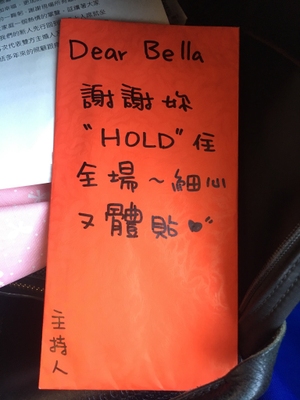 Dear Bella
謝謝妳
“HOLD”住
全場～細心
又體貼♥”
主持人